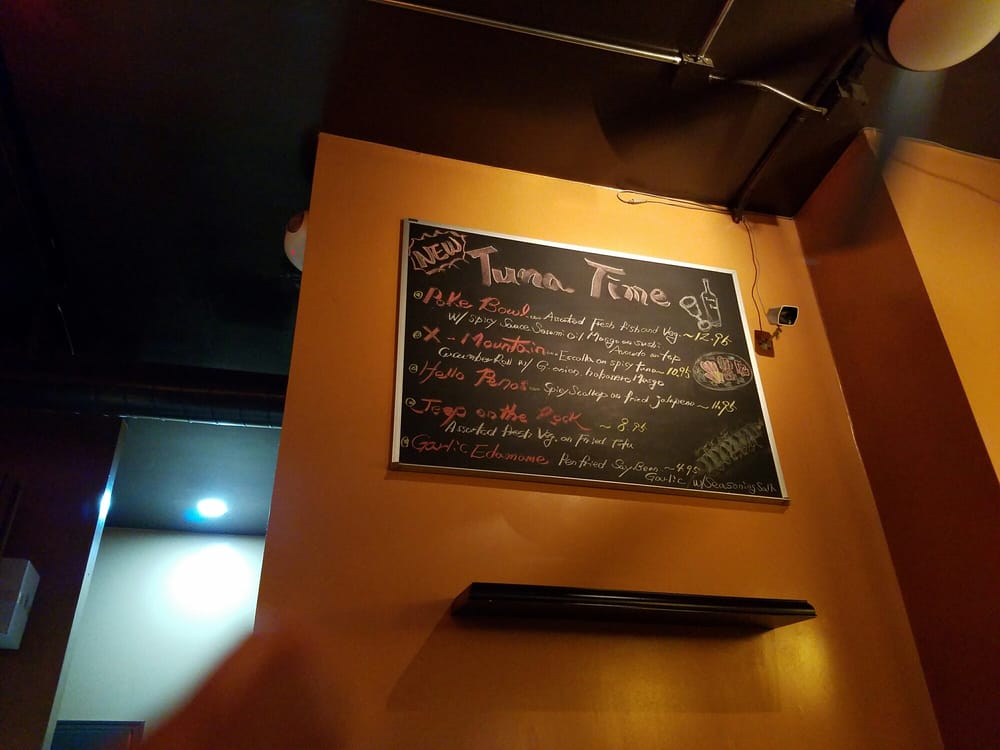 NEW
Tuna Time
@ Poke Bowl ~ Assorted Fresh fish and Veg. ~ 12.95
W/ Spicy Sauce Sesami oil Masgo on sushi
Avocato on top
@ X-Mountain ~ Escolla on spicy tuna ~ 10.95
Cucumber Roll w/ G.onion, habanero Masgo
@ Hello Penos ~ Spicy Scallop on fried jalapeno ~ 11.95
@ on the Rock ~ 8.95
Assorted fresh Veg. on Fried Tofu
@ Garlic Edamame Penfried Soy Been ~ 4.95
Garlic w/ Seasoning Salt